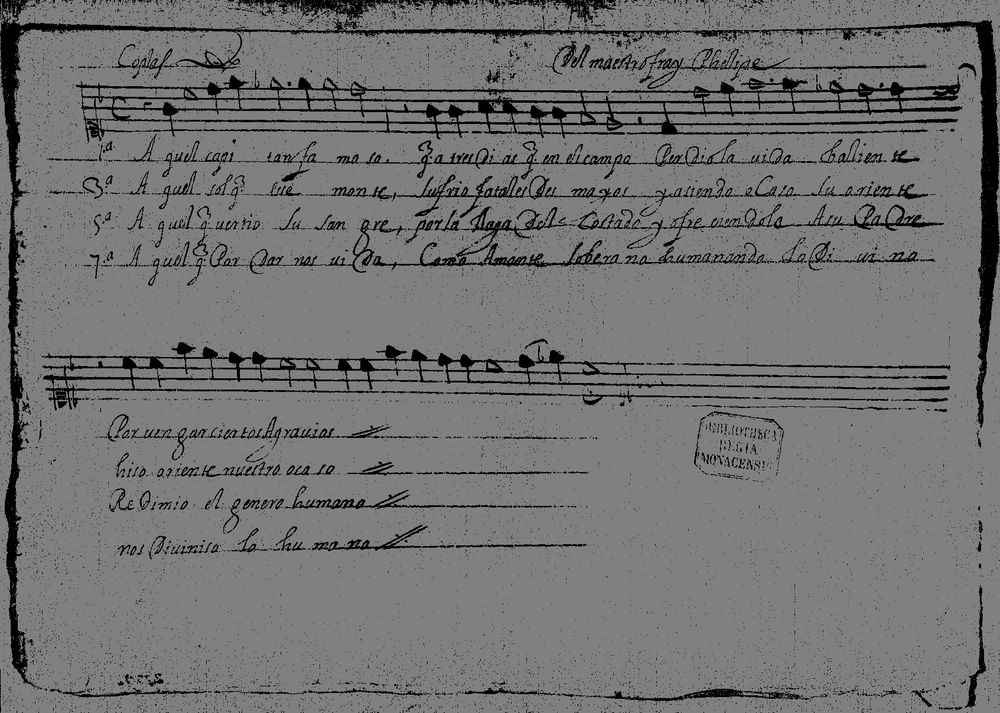 Coplas Del maestro fray Phelipe
1.ª A quel capi tan fa mo so. q̃ a tres Di as q̃ en el campo Per Dio la vi da balien te
3.ª A quel sol q̃ en mon te, sufrio fatales Des mayos y asiendo oCaso Su orien te
5.ª A quel q̃ vertio Su san gre, por la llaga Del Costado y ofre ciendola A su Pa Dre
7.ª A quel q̃ Por Dar nos vi Da, Como Amante Sobera no humanando La Di vi na
Por ven gar ciertos Agravios
hiso oriente nuestro oca so
Re Dimio el genero humano
nos Divinisa lo hu ma no
BIBLIOTHECA
REGIA
MONACENSIS